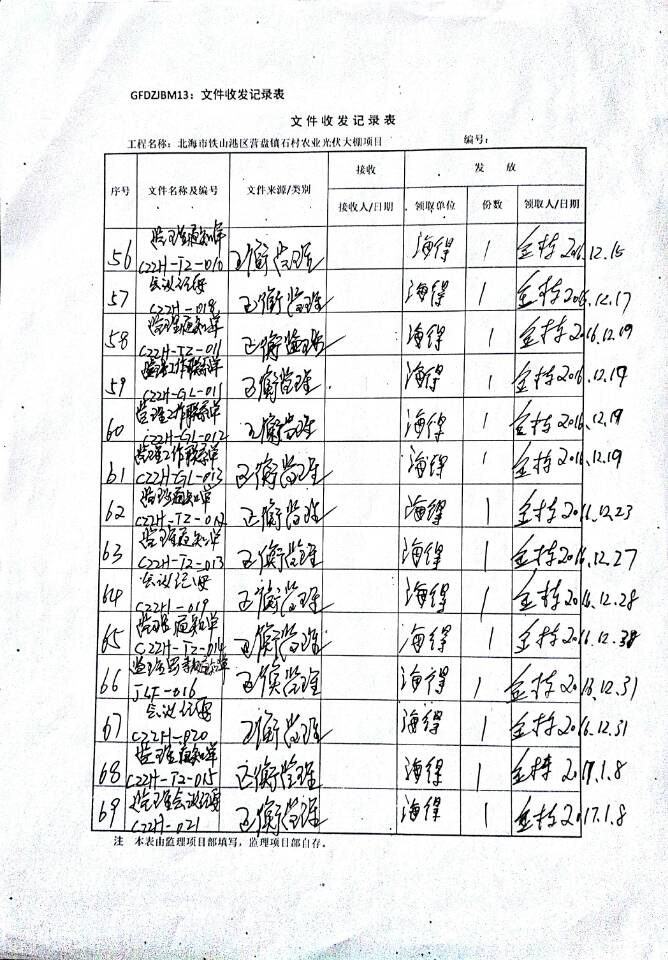 GFDZJBM13：文件收发记录表
文件收发记录表
工程名称：北海市铁山港区营盘镇石村农业光伏大棚项目 编号：
序号 文件名称及编号 文件来源/类别 接收 发放
接收人/日期 领取单位 份数 领取人/日期
56 监理通知单 正衡监理 海得 1 金栋 2016.12.15
CZZH-TZ-010
57 会议纪要 正衡监理 海得 1 金栋 2016.12.17
CZZH-018
58 监理通知单 正衡监理 海得 1 金栋 2016.12.19
CZZH-TZ-011
59 监理工作联系单 正衡监理 海得 1 金栋 2016.12.19
CZZH-GL-011
60 监理工作联系单 正衡监理 海得 1 金栋 2016.12.19
CZZH-GL-012
61 监理工作联系单 正衡监理 海得 1 金栋 2016.12.19
CZZH-GL-013
62 监理通知单 正衡监理 海得 1 金栋 2016.12.23
CZZH-TZ-012
63 监理通知单 正衡监理 海得 1 金栋 2016.12.27
CZZH-TZ-013
64 会议纪要 正衡监理 海得 1 金栋 2016.12.28
CZZH-019
65 监理通知单 正衡监理 海得 1 金栋 2016.12.
CZZH-TZ-014
66 监理 单 正衡监理 海得 1 金栋 2016.12.31
JLF-016
67 会议纪要 正衡监理 海得 1 金栋 2016.12.31
CZZH-020
68 监理通知单 正衡监理 海得 1 金栋 2017.1.8
CZZH-TZ-015
69 监理会议纪要 正衡监理 海得 1 金栋 2017.1.8
CZZH-021
注 本表由监理项目部填写，监理项目部自存。